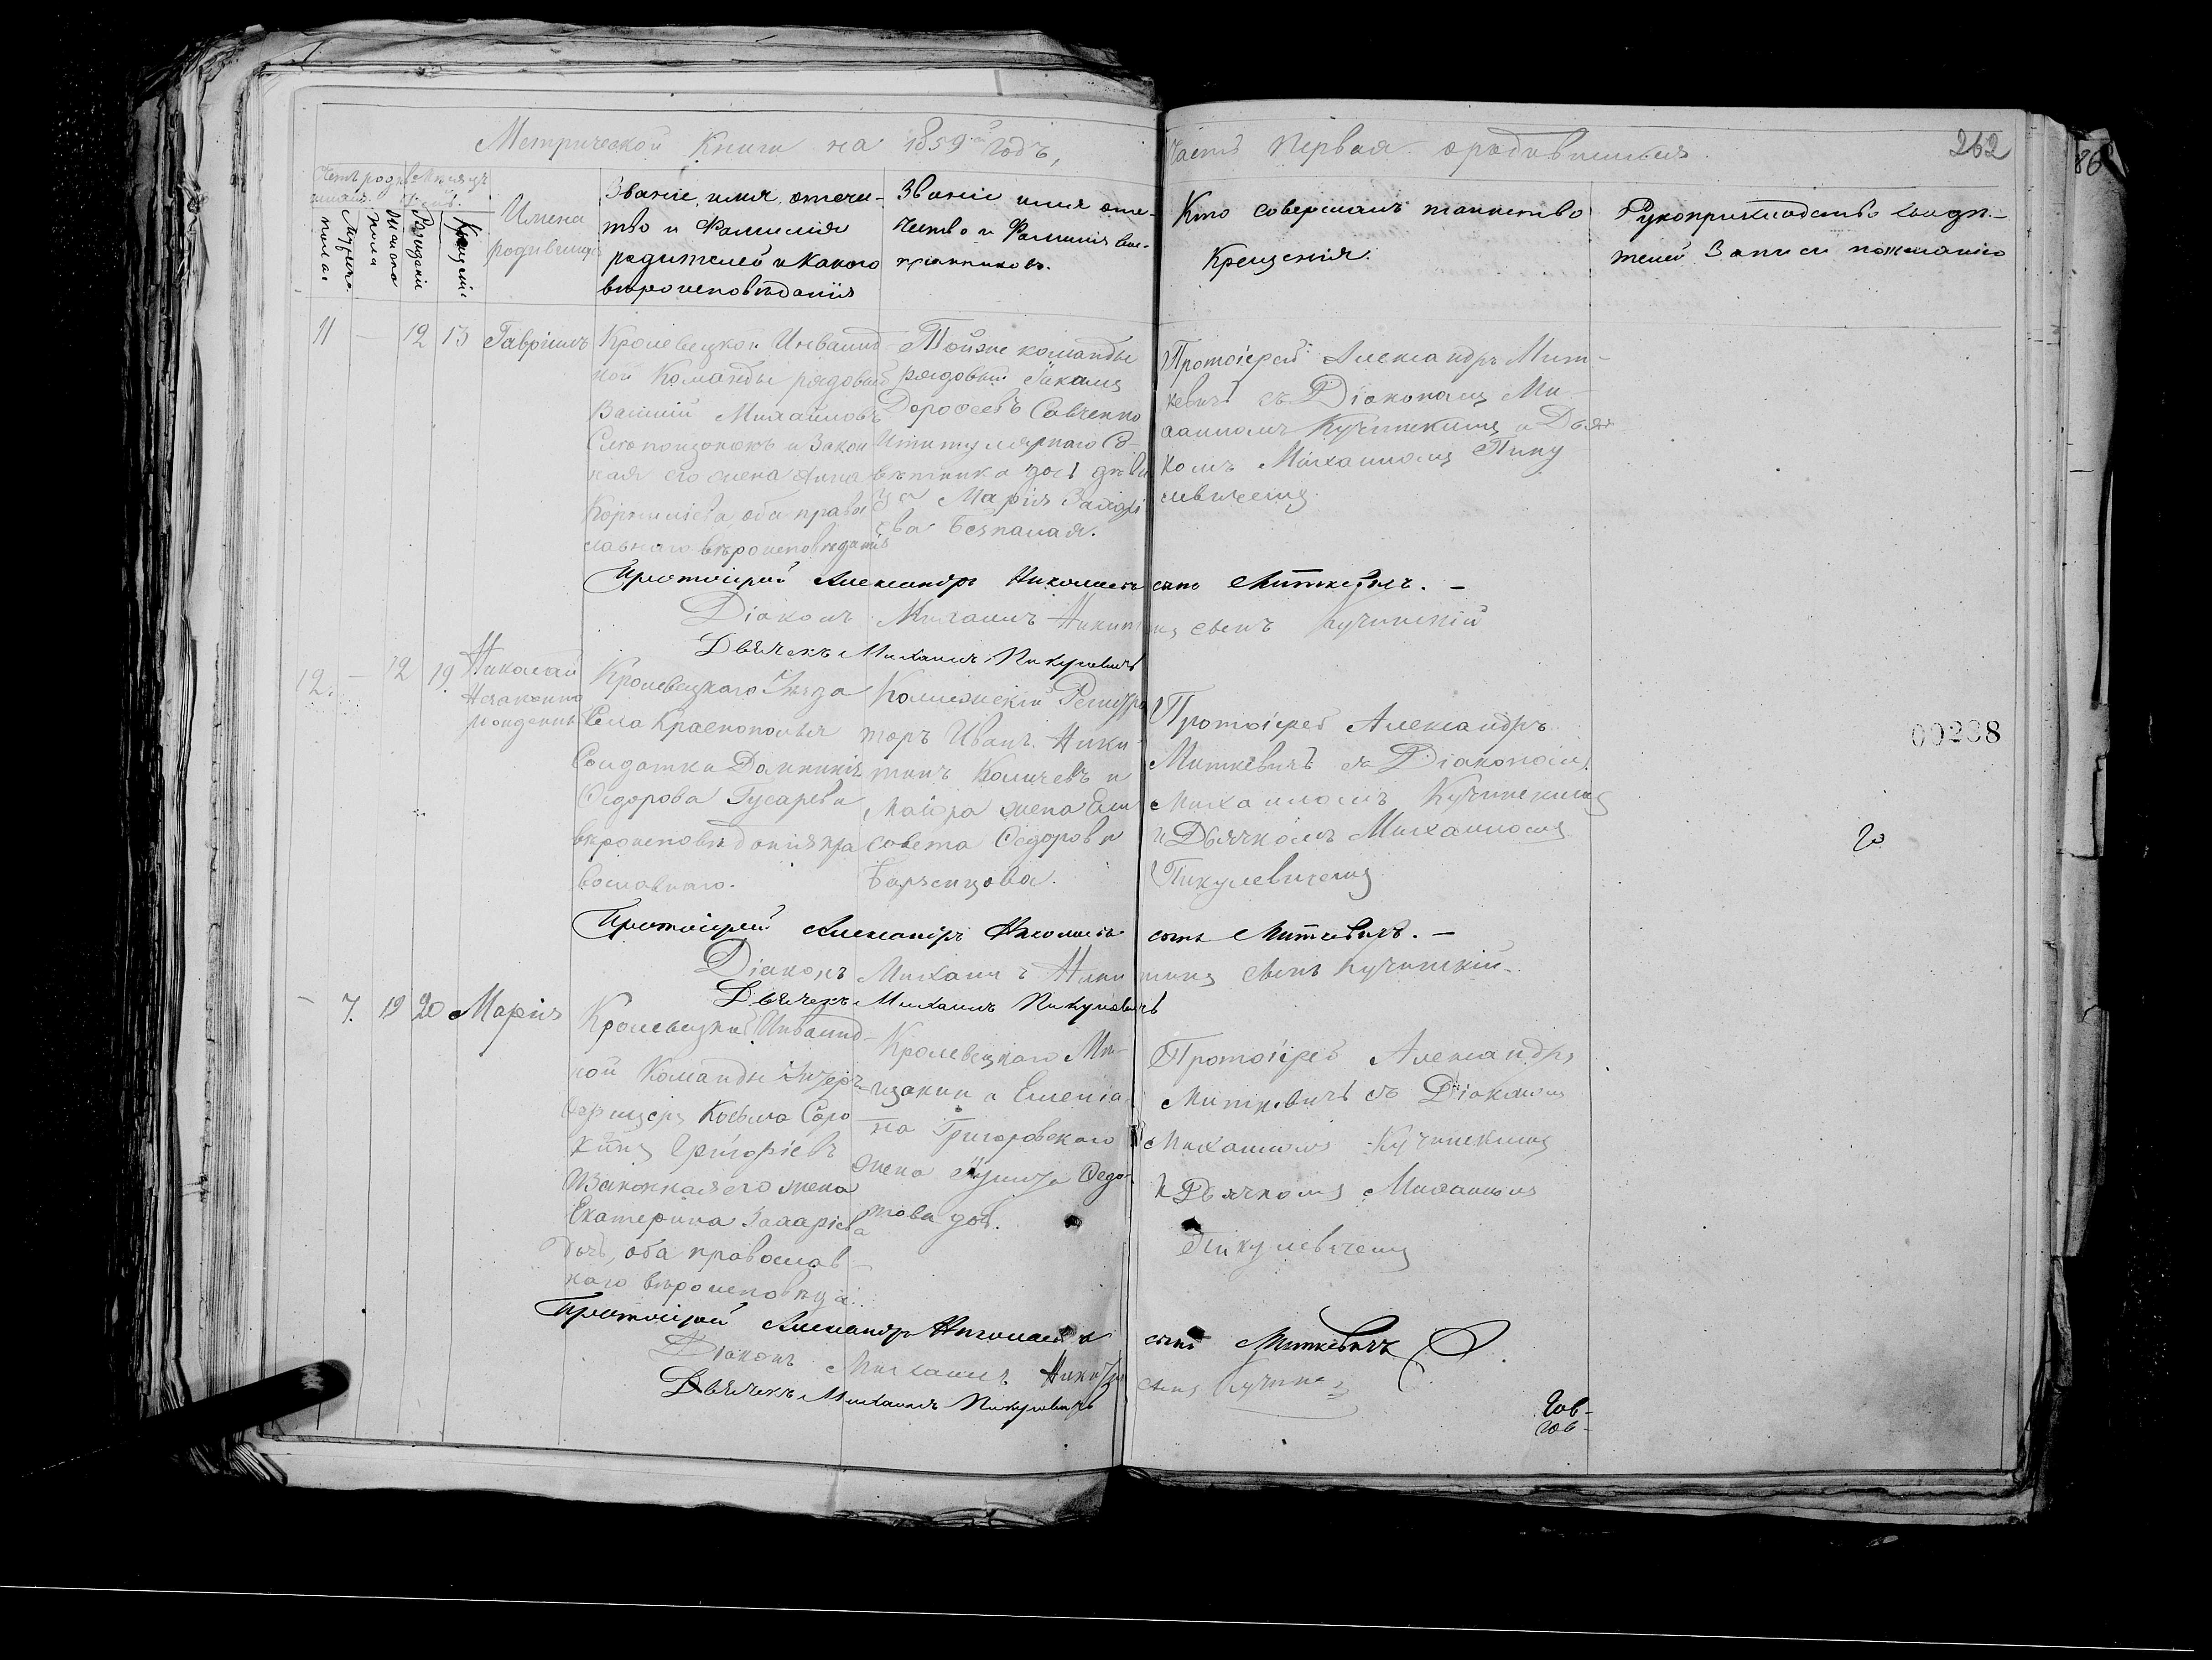 Метрической Книги на 1859й Годъ,
Часть Первая о родившихся.
262
86
Имена родившихся
Званіе, имя, отече-
ство и Фамилія
родителей и какого
вѣроисповѣданія
Званіе имя оте-
чество и Фамилія вос-
пріемниковъ.
Кто совершалъ таинство
Крещенія.
Рукоприкладство свидѣ-
телей Записи по желанію
11 — 12 13 Гавріилъ
Кролевецкой Инвалид-
ной Команды рядовый
Василій Михайловъ
и Закон
ная его жена Анна
оба право
славнаго вѣроисповѣданія
Тойже команды
рядовый
Дороѳеевъ Савченко
Титулярнаго Со-
вѣтника дочь дѣви
ца Марія
ва Безпалая.
Протоіерей Александръ Мит-
кевичъ съ Діакономъ Ми-
хаиломъ Кучинскимъ и Дьяч
комъ Михаиломъ Пику
левичемъ.
Протоіерей Александръ Николаевъ сынъ Миткевичъ. —
Діаконъ Михаилъ Никитинъ сынъ Кучинскій
Дьячекъ Михаилъ Пикулевичъ
12. — 12 19 Николай
Незаконно
рожденный
Кролевецкаго Уѣзда
Села Краснополья
Солдатка Домникія
Ѳедорова Гусарева
вѣроисповѣданія пра
вославнаго.
Коллежскій Регистра
торъ Иванъ Ники-
тинъ и
Маіора жена Ели
савета Ѳедорова
Протоіерей Александръ
Миткевичъ съ Діакономъ
Михаиломъ Кучинскимъ
и Дьячкомъ Михаиломъ
Пикулевичемъ
00238
Протоіерей Александръ Николаевъ сынъ Миткевичъ. —
Діаконъ Михаилъ Никитинъ сынъ Кучинскій
Дьячекъ Михаилъ Пикулевичъ
— 7. 19 20 Марія
Кролевецкой Инвалид-
ной Команды Унтеръ
Офицеръ Косьма Соро
кинъ Григоріевъ
и Законная его жена
Екатерина Захаріева
дочь, оба православ-
наго вѣроисповѣда.
Кролевецкаго Мѣ-
щанина
на Григоровскаго
жена Ѳедо-
това доч.
Протоіерей Александръ
Миткевичъ съ Діакономъ
Михаиломъ Кучинскимъ
и Дьячкомъ Михаиломъ
Пикулевичемъ
Протоіерей Александръ Николаевъ сынъ Миткевичъ
Діаконъ Михаилъ Никитинъ сынъ
Дьячекъ Михаилъ Пикулевичъ